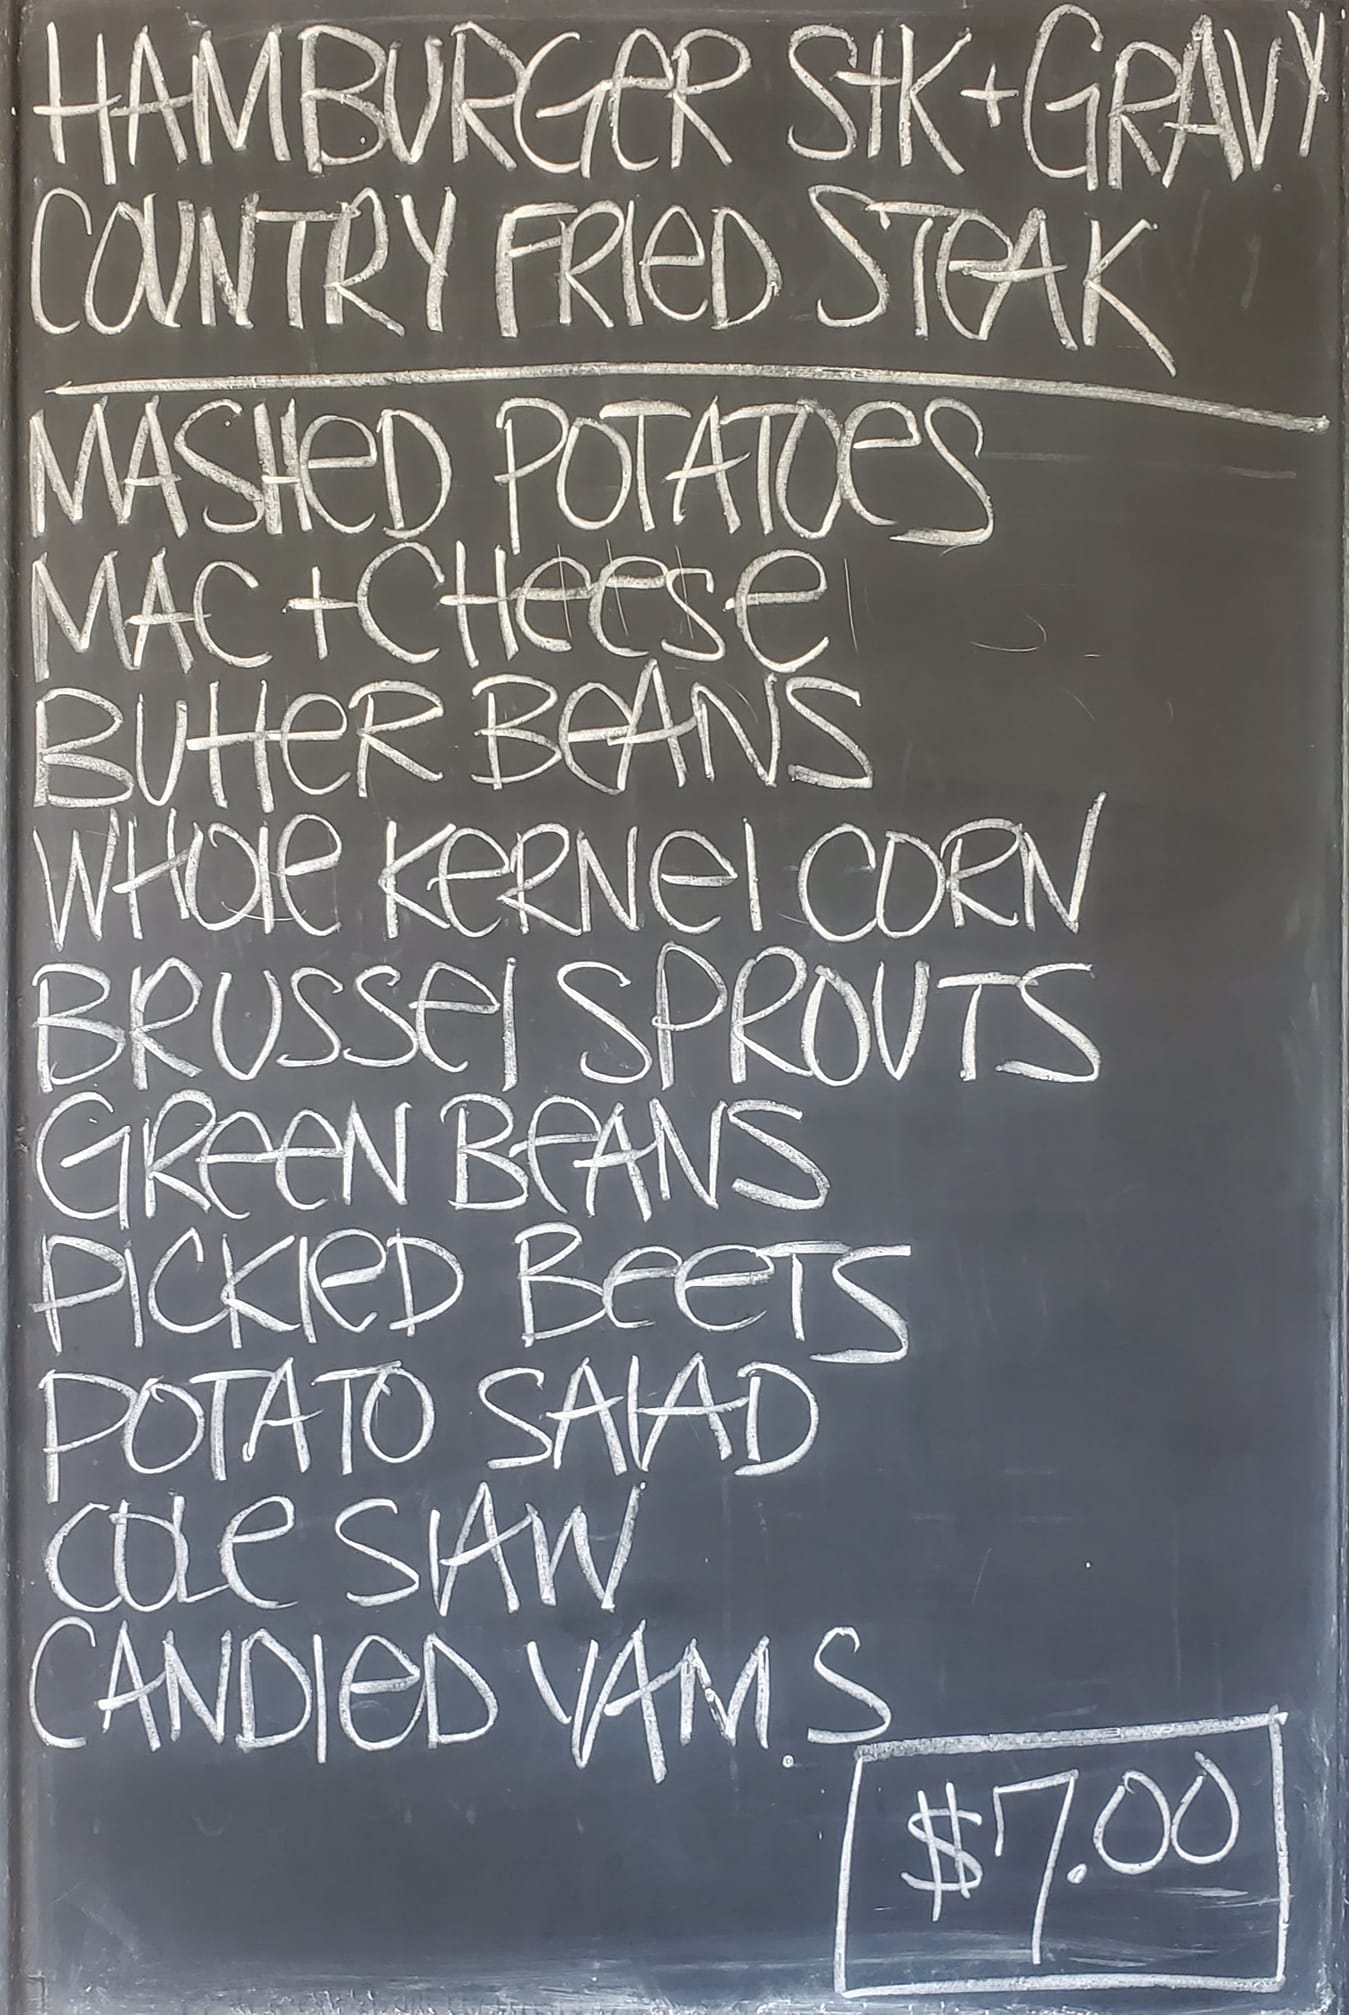 HAMBURGER StK + GRAVY
COUNTRY FRIED STEAK
MASHED POTATOES
MAC + CHEESE
BUTTER BEANS
WHOLE KERNEL CORN
BRUSSEL SPROUTS
GREEN BEANS
PICKLED BEETS
POTATO SALAD
COLE SLAW
CANDIED YAMS
$7.00